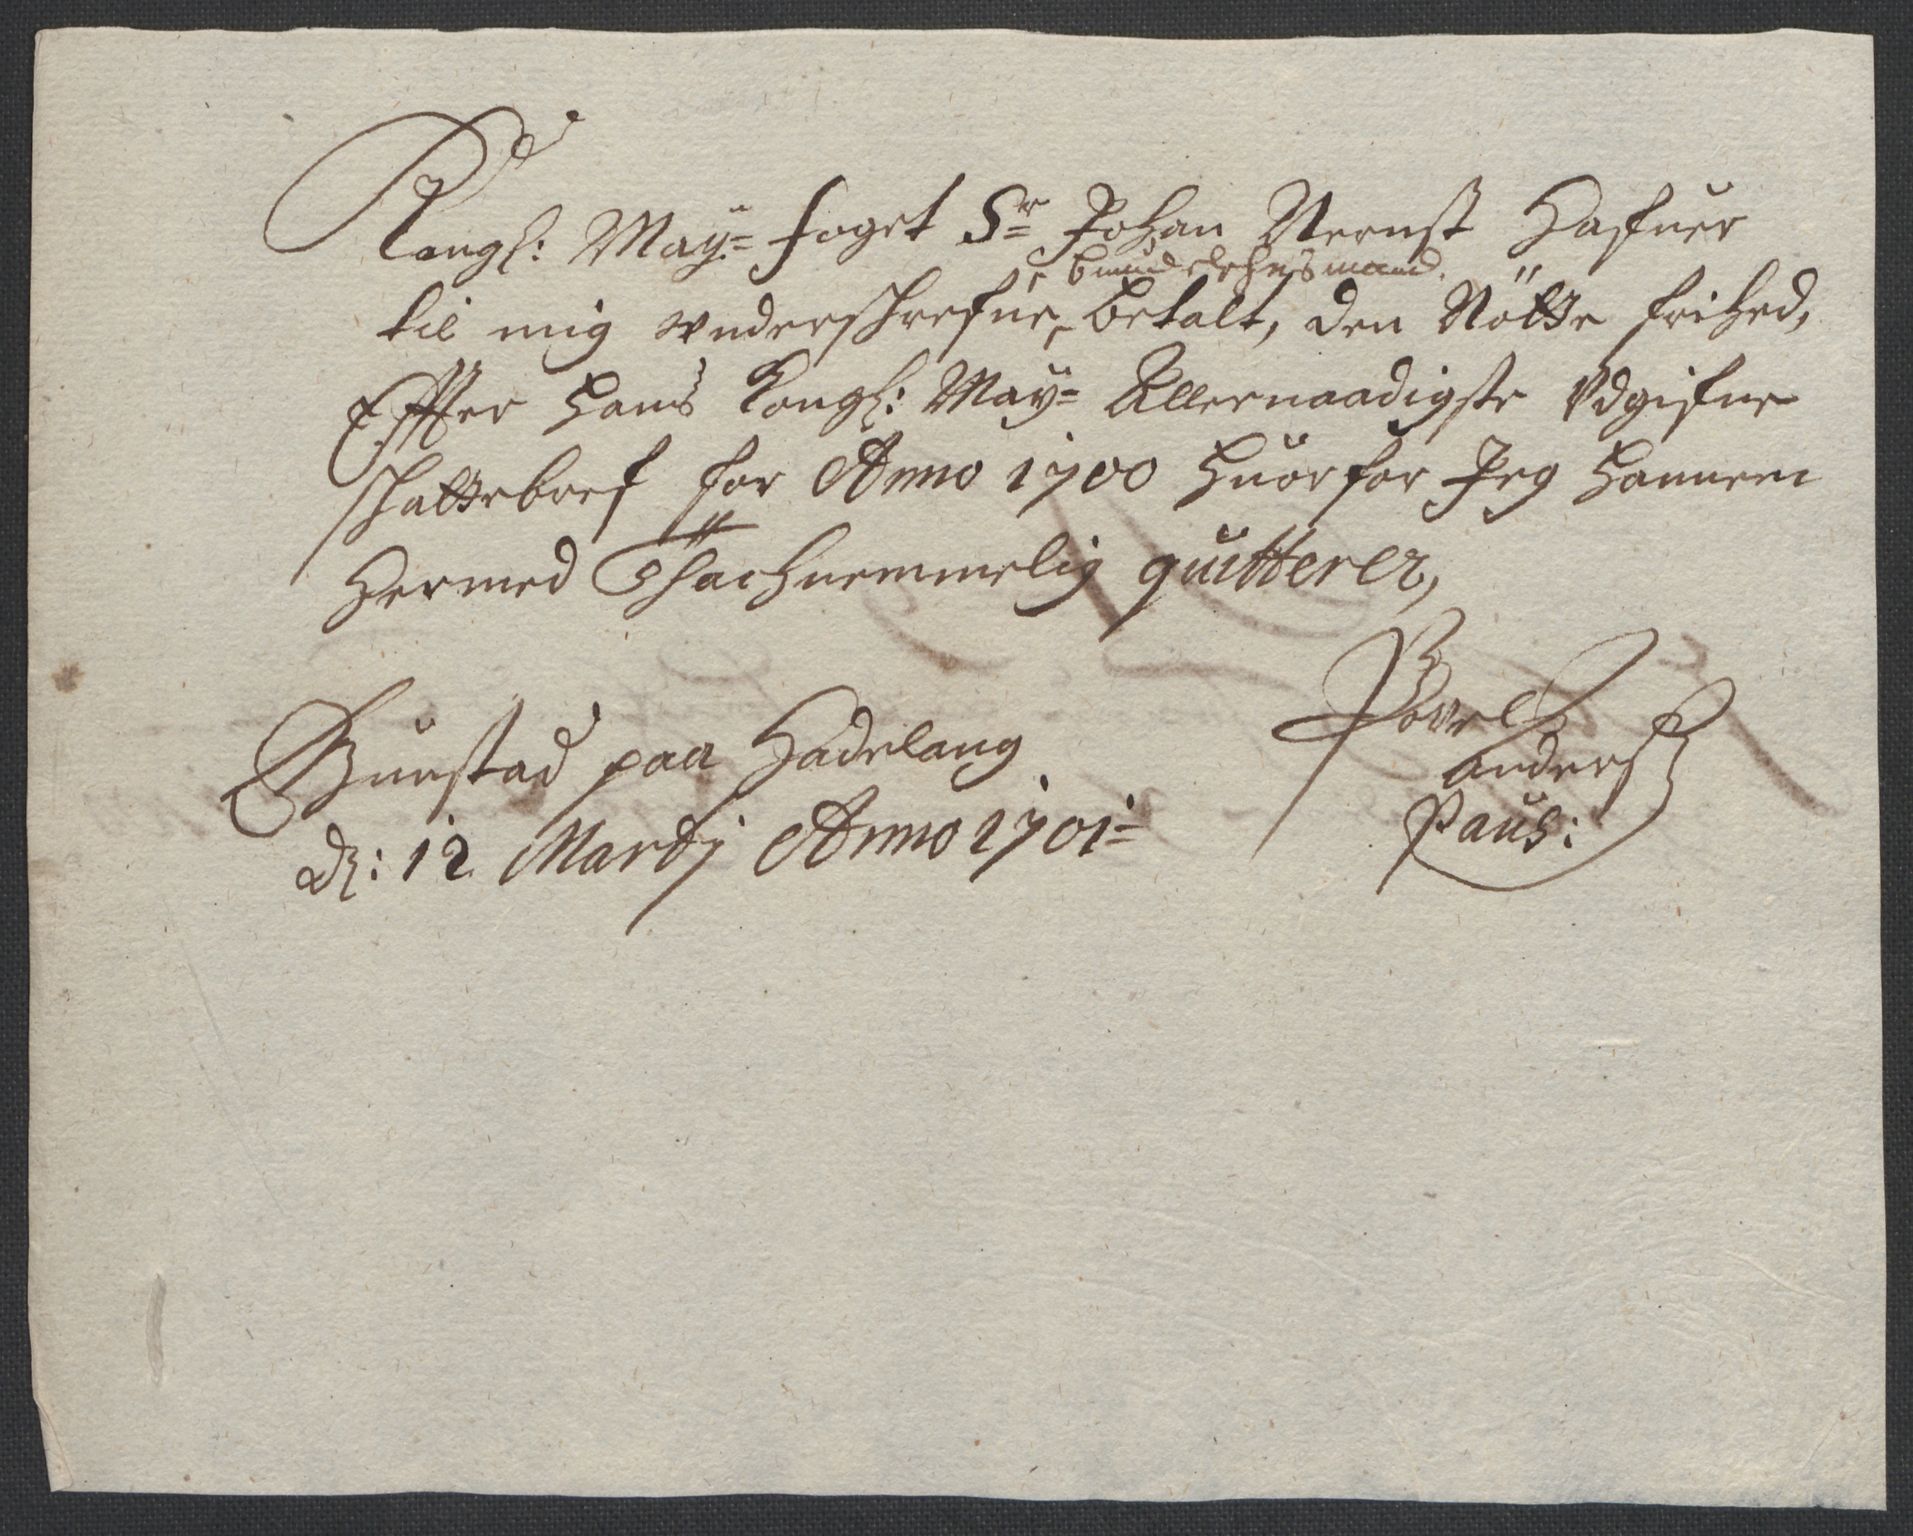 Kongl: May: foget Sr Johan Nernst Hafuer
bundelehnsmand.
til mig underschrefne betalt, den Nötte frihed,
Effter Hans Kongl: May: Allernaadigste Udgifne
schattebref for Anno 1700 Huorfor Jeg Hannem
Hermed Tachnemmelig quitterer,
Bunstad paa Hadelang
dl: 12 Martj Anno 1701
Povel
anders
Paus: